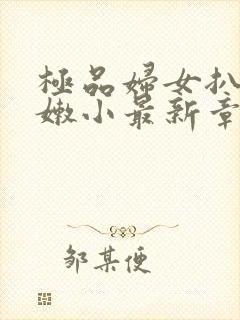 極品婦女扒
嫩小最新章
邹某便